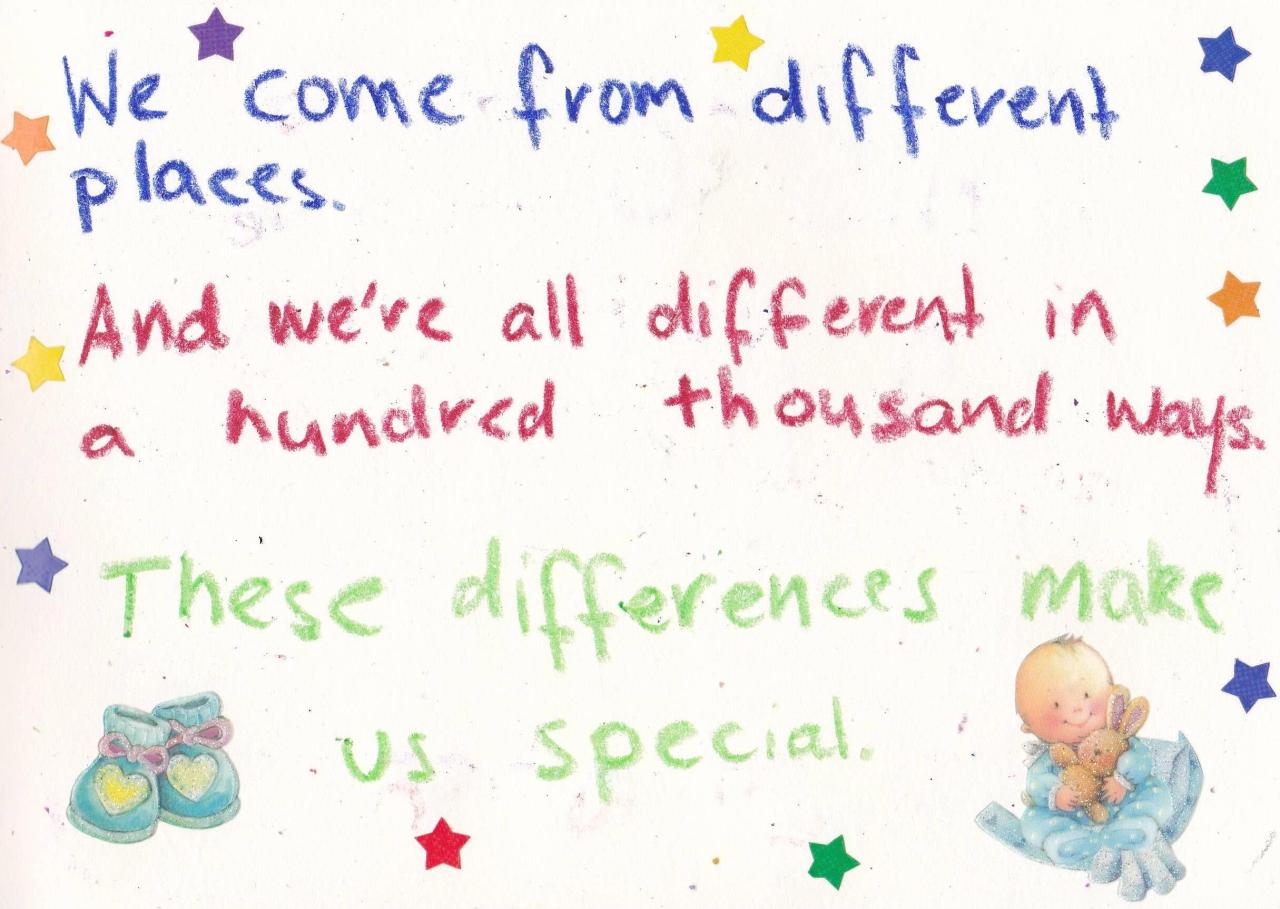 We come from different
places.
And we're all different in
a hundred thousand ways.
These differences make
us special.